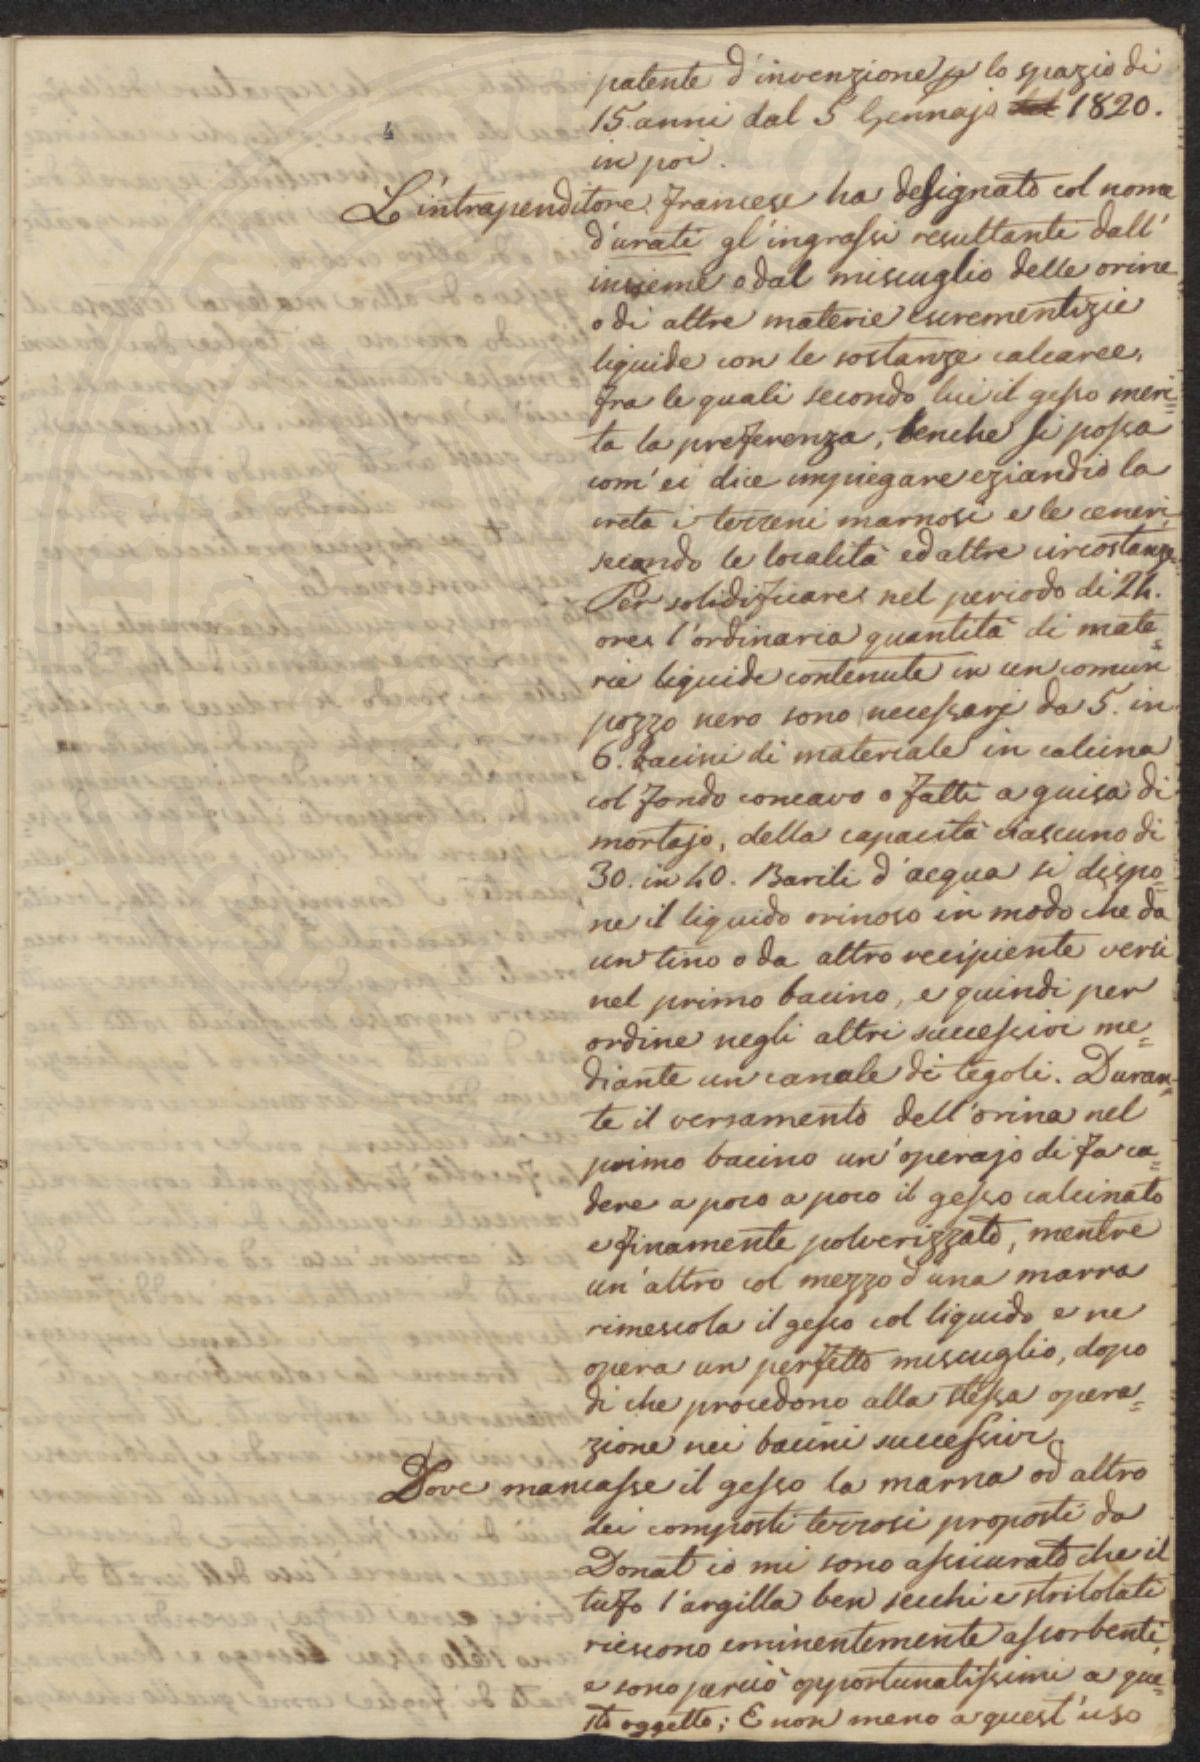 patente d'invenzione p lo spazio di
15. anni dal 5 Gennajo del 1820.
in poi.
L'intraprenditore francese ha designato col nome
d'urati gl'ingrassi resultanti dall'
insieme o dal miscuglio delle orine
o di altre materie escrementizie
liquide con le sostanze calcaree,
fra le quali secondo lui il gesso meri=
ta la preferenza, benche si possa
com'ei dice impiegare eziandio la
creta i terreni marnosi e le ceneri
secondo le località ed altre circostanze.
Per solidificare nel periodo di 24.
ore l'ordinaria quantità di mate=
rie liquide contenute in un comun
pozzo nero sono necessarj da 5. in
6. bacini di materiale in calcina
col fondo concavo o fatti a guisa di
mortajo, della capacità ciascuno di
30. in 40. Barili d'acqua si dispo=
ne il liquido orinoso in modo che da
un tino o da altro recipiente versi
nel primo bacino, e quindi per
ordine negli altri successivi me=
diante un canale di tegoli. Duran=
te il versamento dell'orina nel
primo bacino un'operajo di fa ca=
dere a poco a poco il gesso calcinato
e finamente polverizzato, mentre
un'altro col mezzo d'una marra
rimescola il gesso col liquido e ne
opera un perfetto miscuglio, dopo
di che procedono alla stessa opera=
zione nei bacini successivi.
Dove mancasse il gesso la marna od altro
dei composti terrosi proposti da
Donat io mi sono assicurato che il
tufo l'argilla ben secchi e stritolati
riescono eminentemente assorbenti,
e sono perciò opportunatissimi a que=
sto oggetto; E non meno a quest'uso